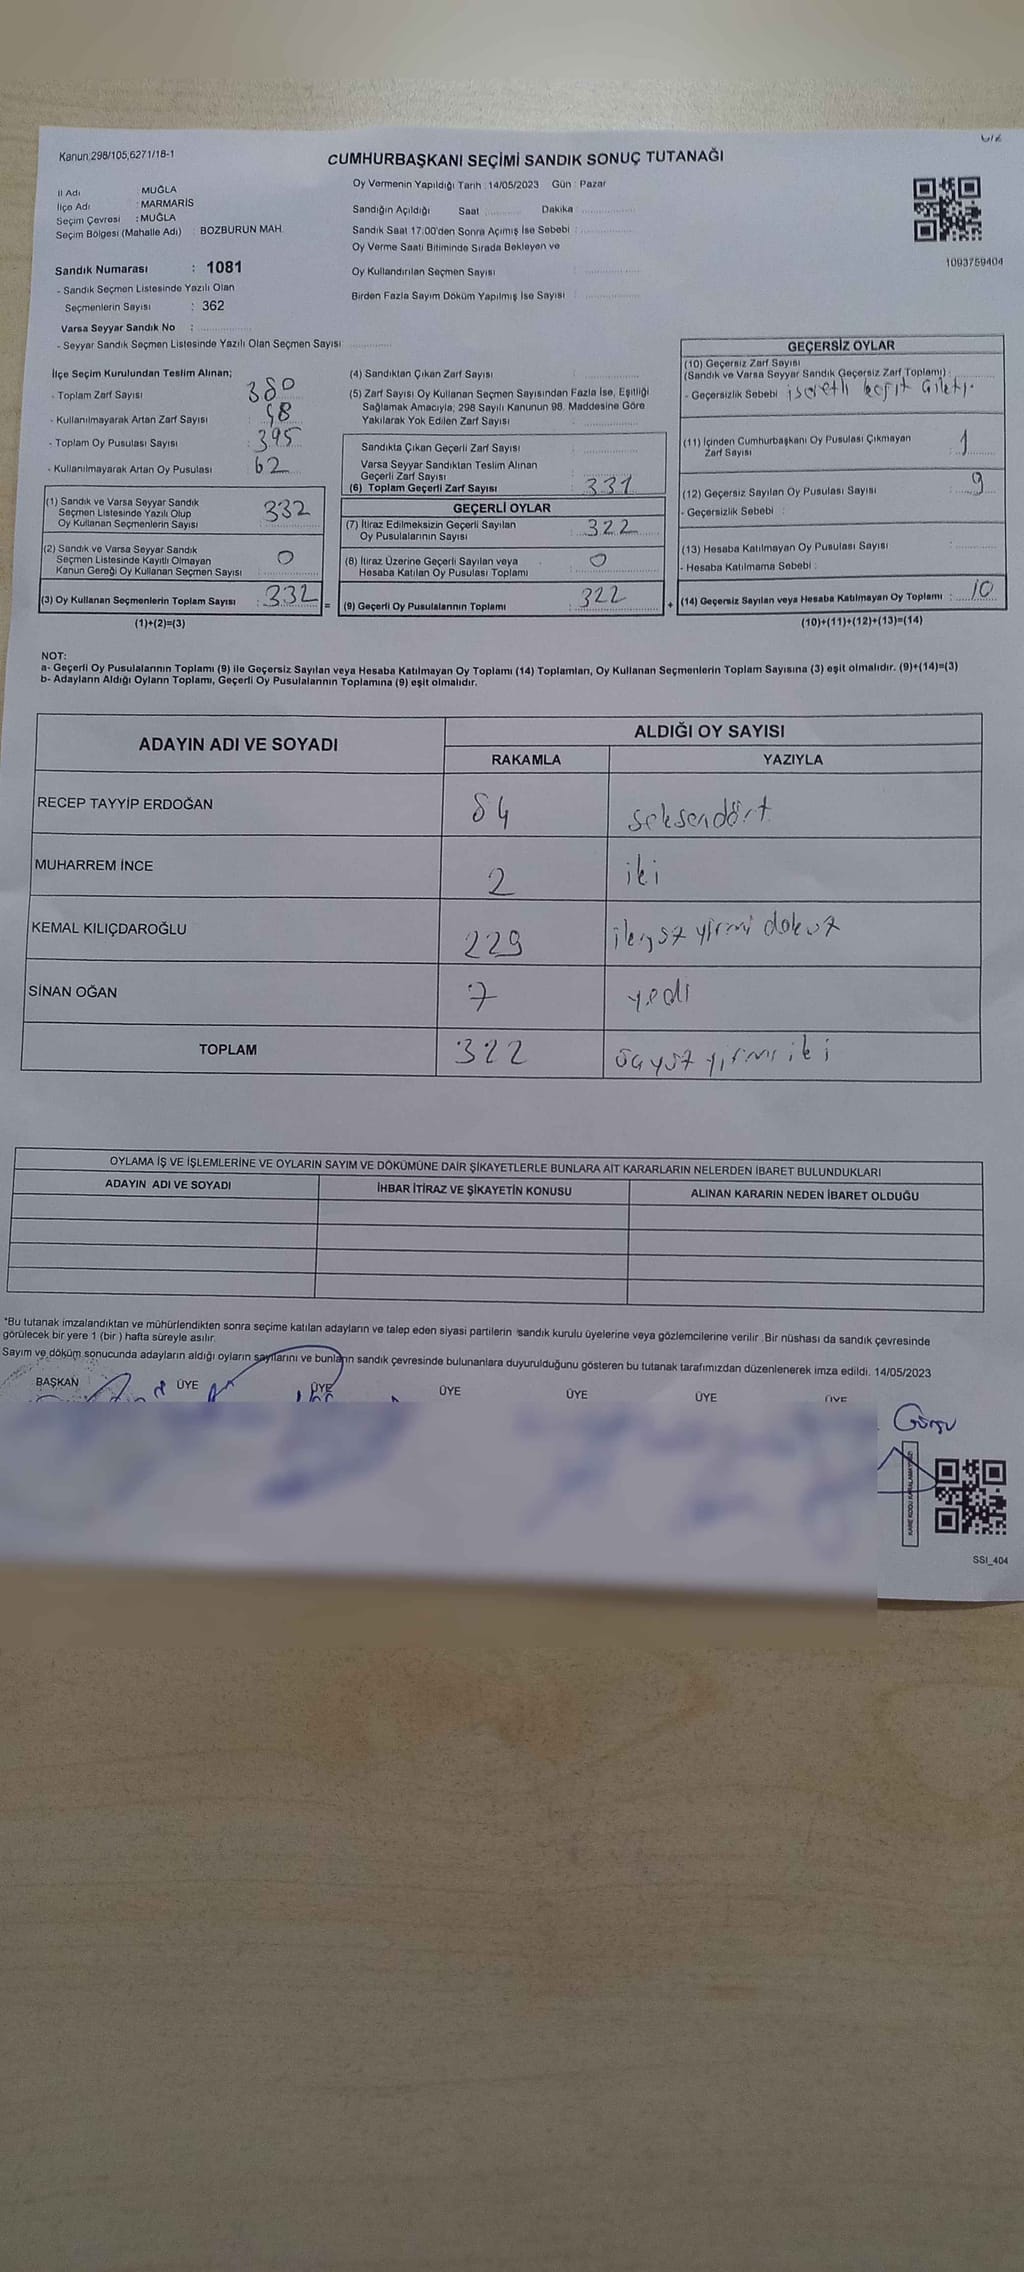 Kanun 298/105,6271/18-1
CUMHURBAŞKANI SEÇİMİ SANDIK SONUÇ TUTANAĞI
İl Adı MUĞLA
İlçe Adı : MARMARİS
Seçim Çevresi : MUĞLA
Seçim Bölgesi (Mahalle Adı) : BOZBURUN MAH.
Sandık Numarası : 1081
- Sandık Seçmen Listesinde Yazılı Olan
Seçmenlerin Sayısı : 362
Varsa Seyyar Sandık No :
- Seyyar Sandık Seçmen Listesinde Yazılı Olan Seçmen Sayısı
Oy Vermenin Yapıldığı Tarih : 14/05/2023 Gün : Pazar
Sandığın Açıldığı Saat Dakika
Sandık Saat 17.00'den Sonra Açımış İse Sebebi :
Oy Verme Saati Bitiminde Sırada Bekleyen ve
Oy Kullandırılan Seçmen Sayısı
Birden Fazla Sayım Döküm Yapılmış İse Sayısı
1093759404
İlçe Seçim Kurulundan Teslim Alınan;
- Toplam Zarf Sayısı : 380
- Kullanılmayarak Artan Zarf Sayısı : 48
- Toplam Oy Pusulası Sayısı : 395
- Kullanılmayarak Artan Oy Pusulası 62
(1) Sandık ve Varsa Seyyar Sandık
Seçmen Listesinde Yazılı Olup
Oy Kullanan Seçmenlerin Sayısı 332
(2) Sandık ve Varsa Seyyar Sandık
Seçmen Listesinde Kayıtlı Olmayan
Kanun Gereği Oy Kullanan Seçmen Sayısı 0
(3) Oy Kullanan Seçmenlerin Toplam Sayısı : 332 =
(1)+(2)=(3)
(4) Sandıktan Çıkan Zarf Sayısı
(5) Zarf Sayısı Oy Kullanan Seçmen Sayısından Fazla İse, Eşitliği
Sağlamak Amacıyla, 298 Sayılı Kanunun 98. Maddesine Göre
Yakılarak Yok Edilen Zarf Sayısı
Sandıkta Çıkan Geçerli Zarf Sayısı
Varsa Seyyar Sandıktan Teslim Alınan
Geçerli Zarf Sayısı
(6) Toplam Geçerli Zarf Sayısı 331
GEÇERLİ OYLAR
(7) İtiraz Edilmeksizin Geçerli Sayılan
Oy Pusulalarının Sayısı : 322
(8) İtiraz Üzerine Geçerli Sayılan veya
Hesaba Katılan Oy Pusulası Toplamı : 0
(9) Geçerli Oy Pusulalarının Toplamı : 322 +
GEÇERSİZ OYLAR
(10) Geçersiz Zarf Sayısı
(Sandık ve Varsa Seyyar Sandık Geçersiz Zarf Toplamı) :
- Geçersizlik Sebebi :
(11) İçinden Cumhurbaşkanı Oy Pusulası Çıkmayan
Zarf Sayısı : 1
(12) Geçersiz Sayılan Oy Pusulası Sayısı : 9
- Geçersizlik Sebebi
(13) Hesaba Katılmayan Oy Pusulası Sayısı :
- Hesaba Katılmama Sebebi :
(14) Geçersiz Sayılan veya Hesaba Katılmayan Oy Toplamı : 10
(10)+(11)+(12)+(13)=(14)
NOT:
a- Geçerli Oy Pusulalarının Toplamı (9) ile Geçersiz Sayılan veya Hesaba Katılmayan Oy Toplamı (14) Toplamları, Oy Kullanan Seçmenlerin Toplam Sayısına (3) eşit olmalıdır. (9)+(14)=(3)
b- Adayların Aldığı Oyların Toplamı, Geçerli Oy Pusulalarının Toplamına (9) eşit olmalıdır.
ADAYIN ADI VE SOYADI ALDIĞI OY SAYISI
RAKAMLA YAZIYLA
RECEP TAYYİP ERDOĞAN 84 seksendört
MUHARREM İNCE 2 iki
KEMAL KILIÇDAROĞLU 229 ikiyüz yirmi dokuz
SİNAN OĞAN 7 yedi
TOPLAM 322 üçyüz yirmi iki
OYLAMA İŞ VE İŞLEMLERİNE VE OYLARIN SAYIM VE DÖKÜMÜNE DAİR ŞİKAYETLERLE BUNLARA AİT KARARLARIN NELERDEN İBARET BULUNDUKLARI
ADAYIN ADI VE SOYADI İHBAR İTİRAZ VE ŞİKAYETİN KONUSU ALINAN KARARIN NEDEN İBARET OLDUĞU
*Bu tutanak imzalandıktan ve mühürlendikten sonra seçime katılan adayların ve talep eden siyasi partilerin sandık kurulu üyelerine veya gözlemcilerine verilir. Bir nüshası da sandık çevresinde
görülecek bir yere 1 (bir) hafta süreyle asılır.
Sayım ve döküm sonucunda adayların aldığı oyların sayılarını ve bunların sandık çevresinde bulunanlara duyurulduğunu gösteren bu tutanak tarafımızdan düzenlenerek imza edildi. 14/05/2023
BAŞKAN ÜYE ÜYE ÜYE ÜYE ÜYE ÜYE
KARE KODU KARALAMAYINIZ
SSI_404